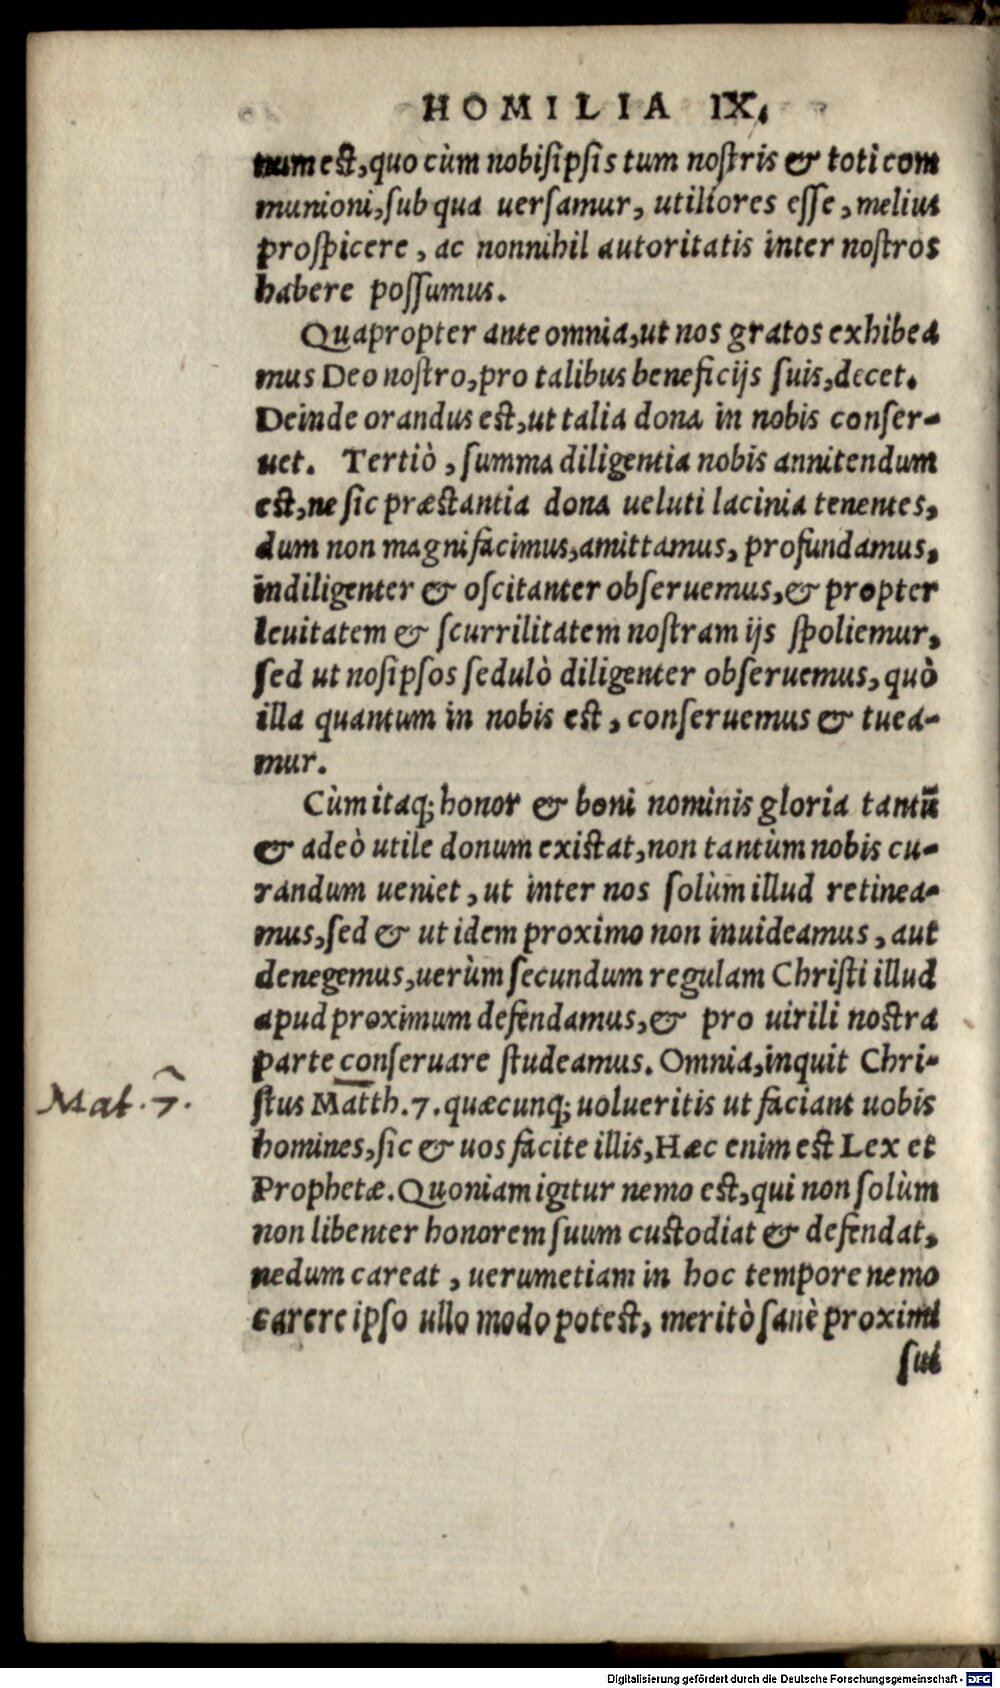 HOMILIA IX.
num est, quo cùm nobisipsis tum nostris & toti com
munioni, sub qua uersamur, utiliores esse, melius
prospicere, ac nonnihil autoritatis inter nostros
habere possumus.
Quapropter ante omnia, ut nos gratos exhibea
mus Deo nostro, pro talibus beneficijs suis, decet.
Deinde orandus est, ut talia dona in nobis conser-
uet. Tertiò, summa diligentia nobis annitendum
est, ne sic præstantia dona ueluti lacinia tenentes,
dum non magnifacimus, amittamus, profundamus,
indiligenter & oscitanter obseruemus, & propter
leuitatem & scurrilitatem nostram ijs spoliemur,
sed ut nosipsos sedulò diligenter obseruemus, quò
illa quantum in nobis est, conseruemus & tuea-
mur.
Cùm itaq; honor & boni nominis gloria tantũ
& adeò utile donum existat, non tantùm nobis cu-
randum ueniet, ut inter nos solùm illud retinea-
mus, sed & ut idem proximo non inuideamus, aut
denegemus, uerùm secundum regulam Christi illud
apud proximum defendamus, & pro uirili nostra
parte conseruare studeamus. Omnia, inquit Chri-
Mat. 7.
stus Matth. 7. quæcunq; uolueritis ut faciant uobis
homines, sic & uos facite illis, Hæc enim est Lex et
Prophetæ. Quoniam igitur nemo est, qui non solùm
non libenter honorem suum custodiat & defendat,
nedum careat, uerumetiam in hoc tempore nemo
carere ipso ullo modo potest, meritò sanè proximi
sui
Digitalisierung gefördert durch die Deutsche Forschungsgemeinschaft - DFG